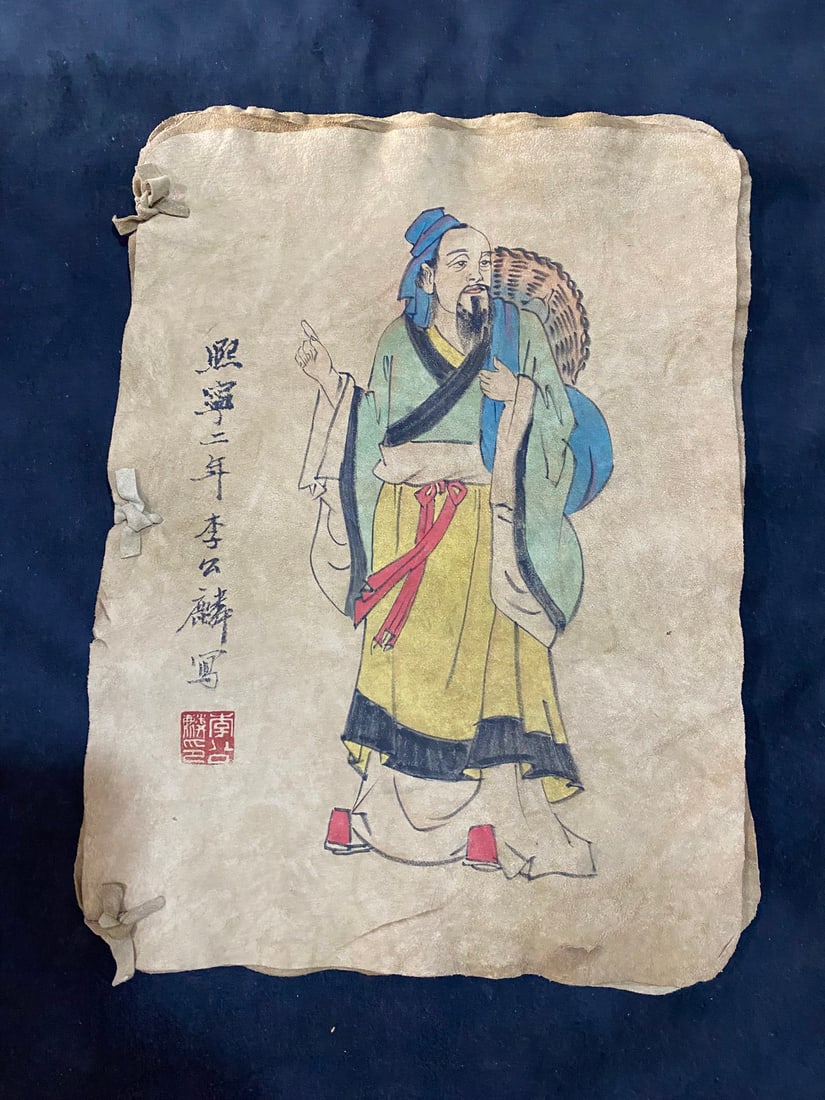 熈寧二年李公麟寫
李公麟印